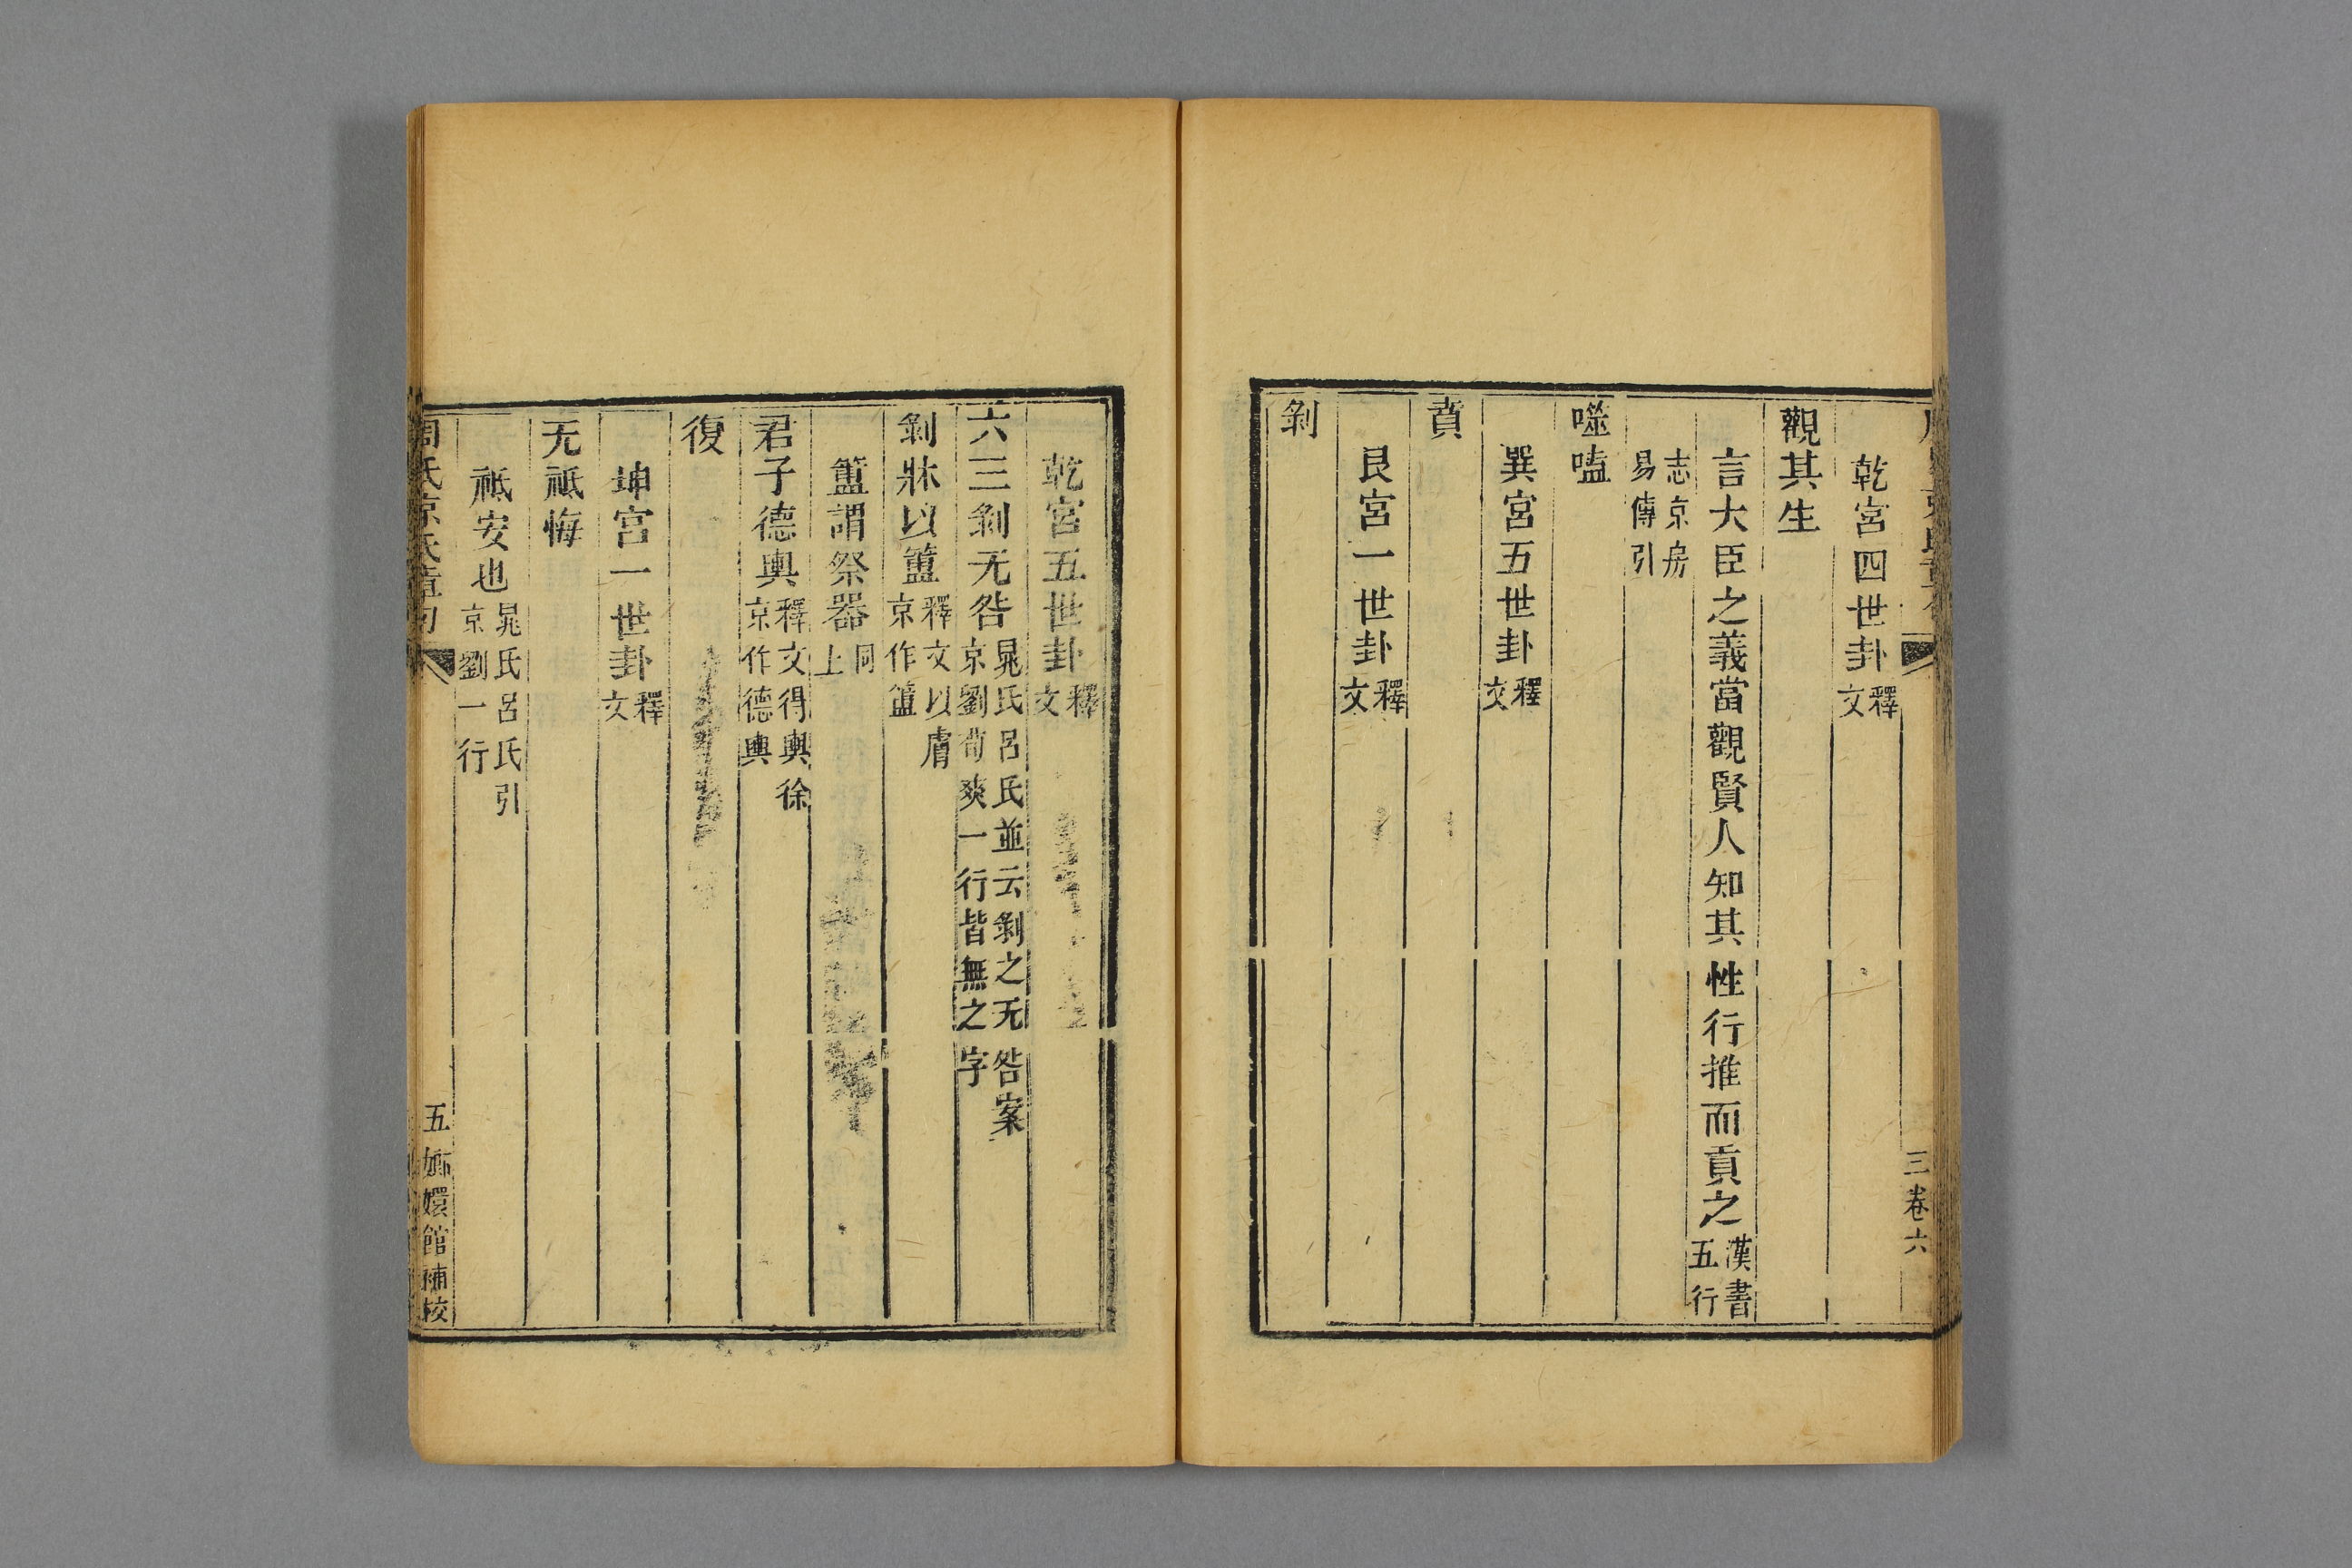 三卷六
乾宮四世卦釋文
觀其生
言大臣之義當觀賢人知其性行推而貢之漢書五行
志京房易傳引
噬嗑
巽宮五世卦釋文
賁
艮宮一世卦釋文
剝
乾宮五世卦釋文
六三剝无咎晁氏呂氏並云剝之无咎案京劉荀爽一行皆無之字
剝牀以簠釋文以膚京作簠
簠謂祭器同上
君子德輿釋文得輿徐京作德輿
復
坤宮一世卦釋文
无祗悔
祗安也晁氏呂氏引京劉一行
周氏京氏章句 五 嫏嬛館補校